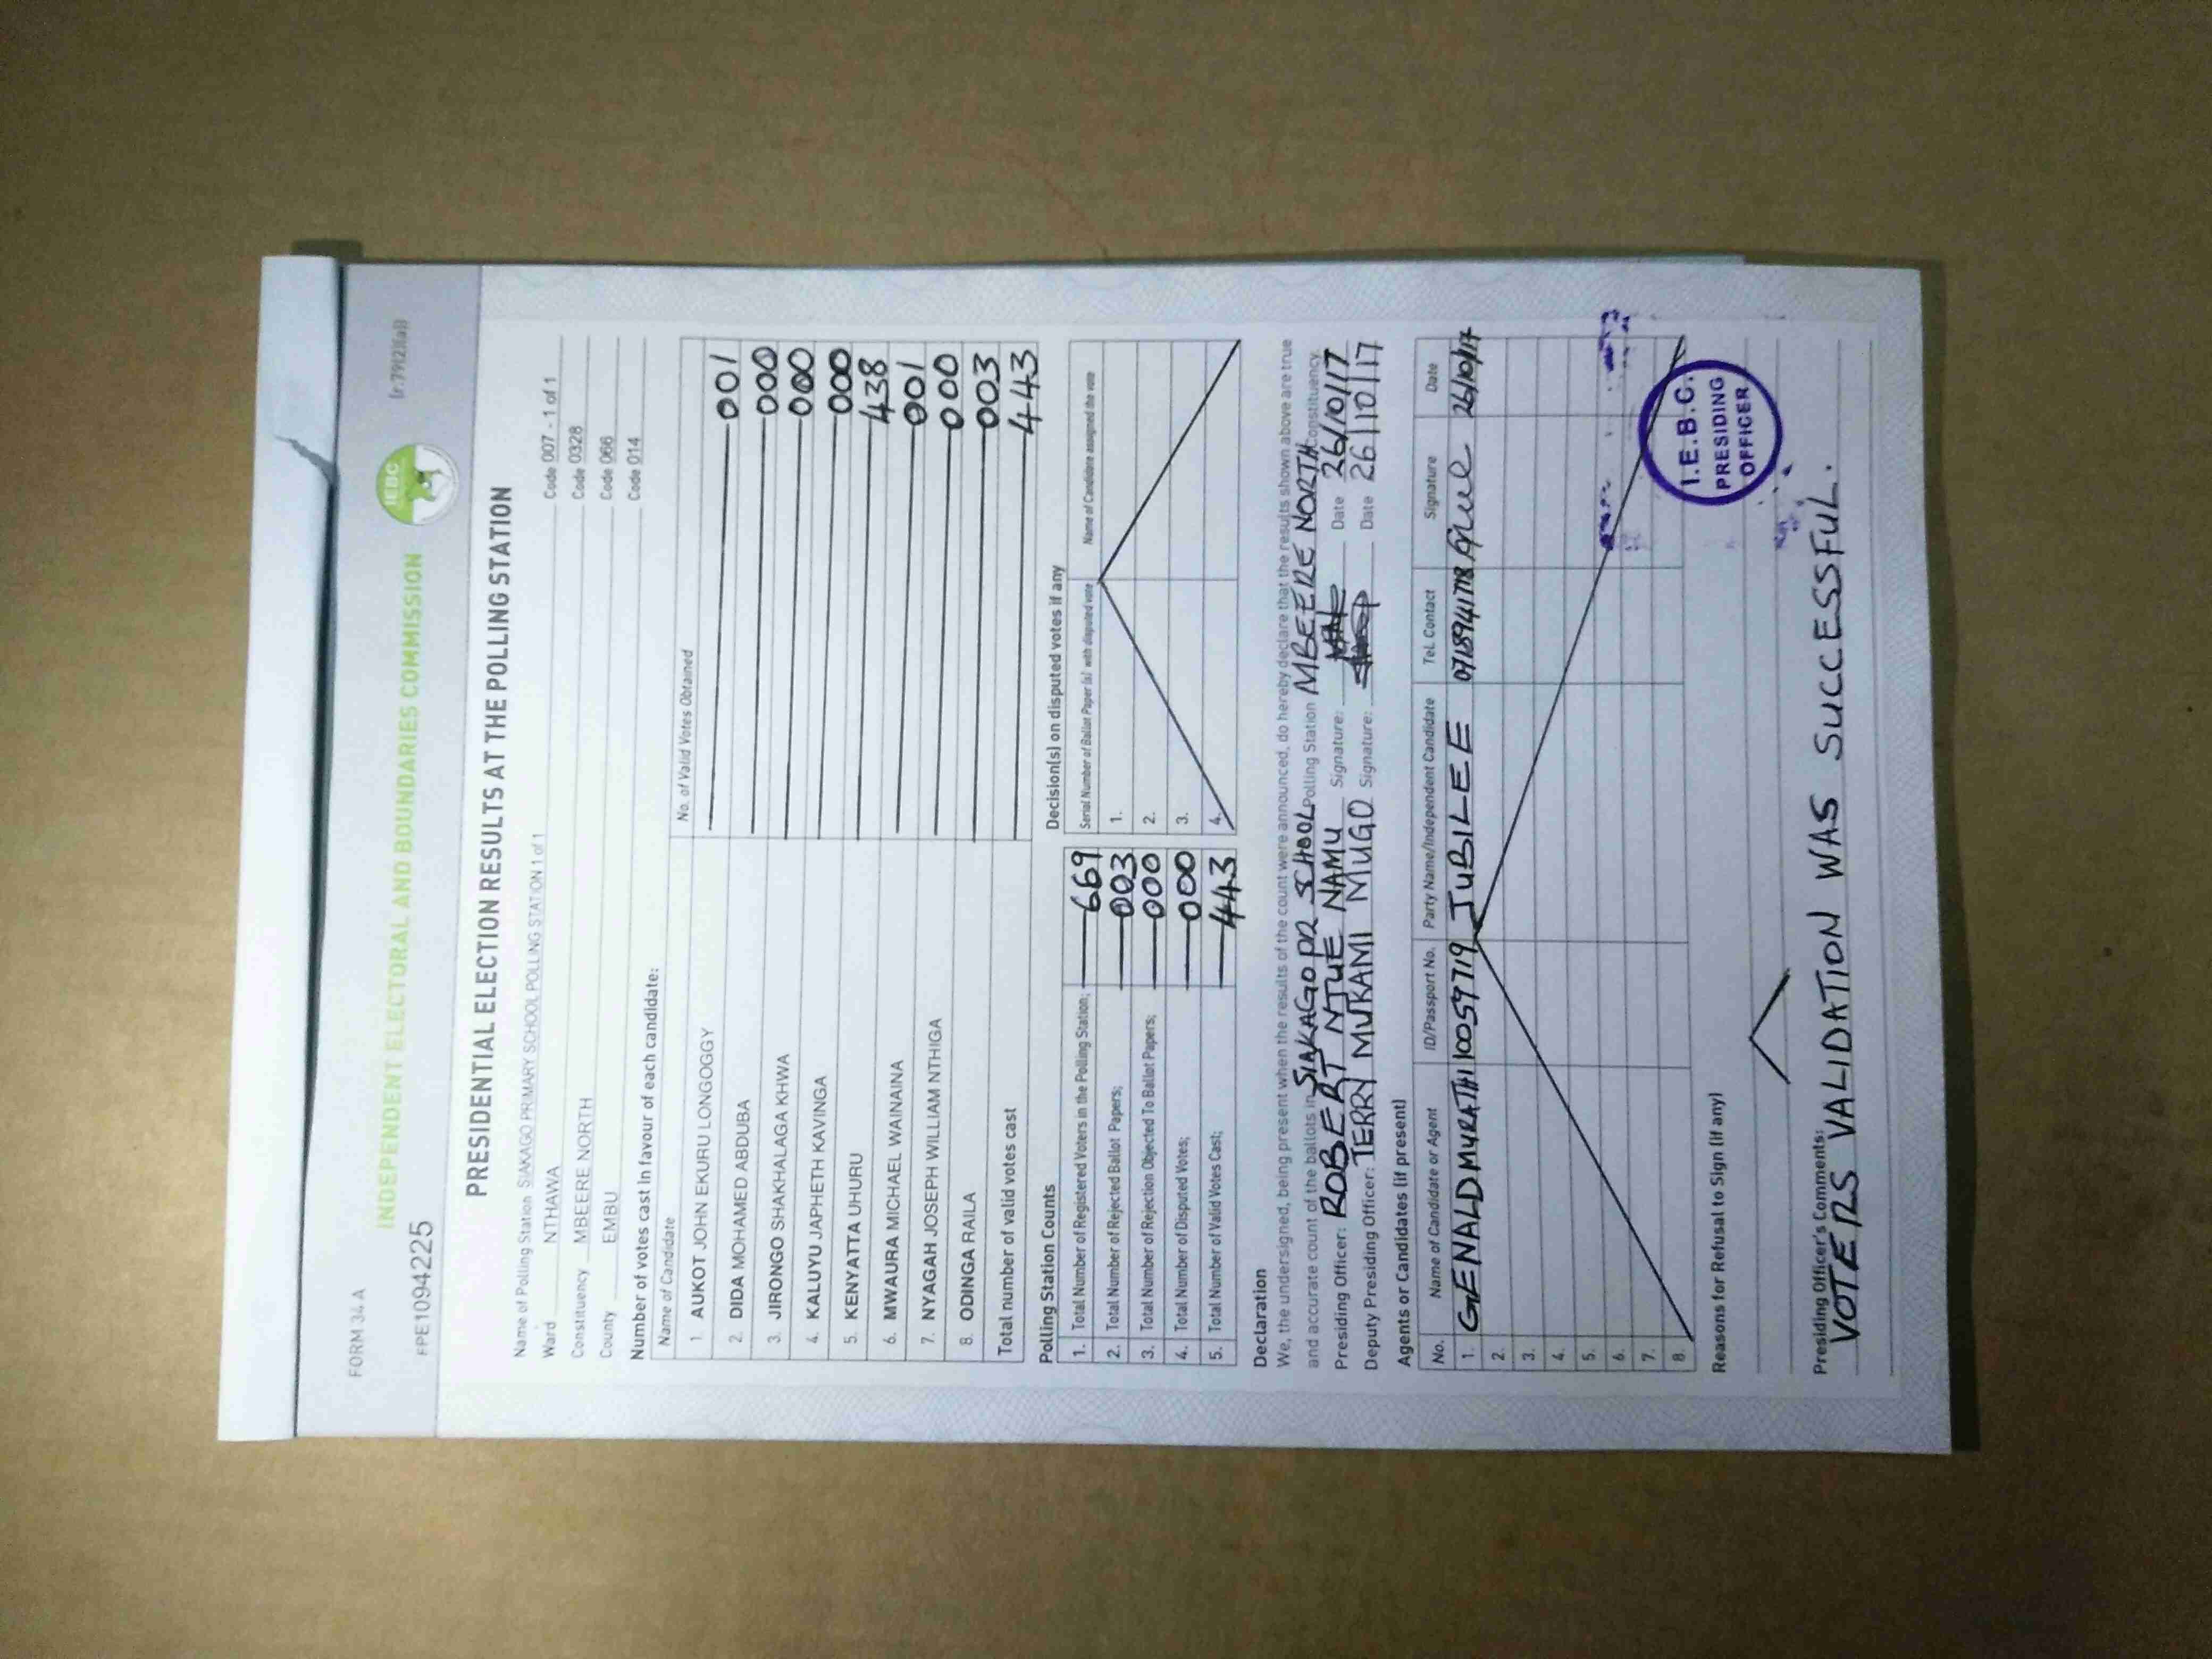 FORM 34 A
INDEPENDENT ELECTORAL AND BOUNDARIES COMMISSION
IEBC
FPE1094225
PRESIDENTIAL ELECTION RESULTS AT THE POLLING STATION
Name of Polling Station SIAKAGO PRIMARY SCHOOL POLLING STATION 1 of 1 Code 007 - 1 of 1
Ward NTHAWA Code 0328
Constituency MBEERE NORTH Code 066
County EMBU Code 014
Number of votes cast in favour of each candidate:
Name of Candidate No. of Valid Votes Obtained
1. AUKOT JOHN EKURU LONGOGGY 001
2. DIDA MOHAMED ABDUBA 000
3. JIRONGO SHAKHALAGA KHWA 000
4. KALUYU JAPHETH KAVINGA 000
5. KENYATTA UHURU 438
6. MWAURA MICHAEL WAINAINA 001
7. NYAGAH JOSEPH WILLIAM NTHIGA 000
8. ODINGA RAILA 003
Total number of valid votes cast 443
Polling Station Counts
1. Total Number of Registered Voters in the Polling Station; 669
2. Total Number of Rejected Ballot Papers; 003
3. Total Number of Rejection Objected To Ballot Papers; 000
4. Total Number of Disputed Votes; 000
5. Total Number of Valid Votes Cast; 443
Decision(s) on disputed votes if any
Serial Number of Ballot Paper (s) with disputed vote Name of Candidate assigned the vote
1.
2.
3.
4.
Declaration
We, the undersigned, being present when the results of the count were announced, do hereby declare that the results shown above are true
and accurate count of the ballots in SIAKAGO PR SCHOOL Polling Station MBEERE NORTH Constituency.
Presiding Officer: ROBERT NTUE NAMU Signature: Date 26/10/17
Deputy Presiding Officer: TERRY MUKAMI MUGO Signature: Date 26/10/17
Agents or Candidates (if present)
No. Name of Candidate or Agent ID/Passport No. Party Name/Independent Candidate Tel. Contact Signature Date
1. GENALD MURATHI 10059719 JUBILEE 26/10/17
2.
3.
4.
5.
6.
7.
8.
I.E.B.C.
PRESIDING
OFFICER
Reasons for Refusal to Sign (if any)
Presiding Officer's Comments:
VOTERS VALIDATION WAS SUCCESSFUL.